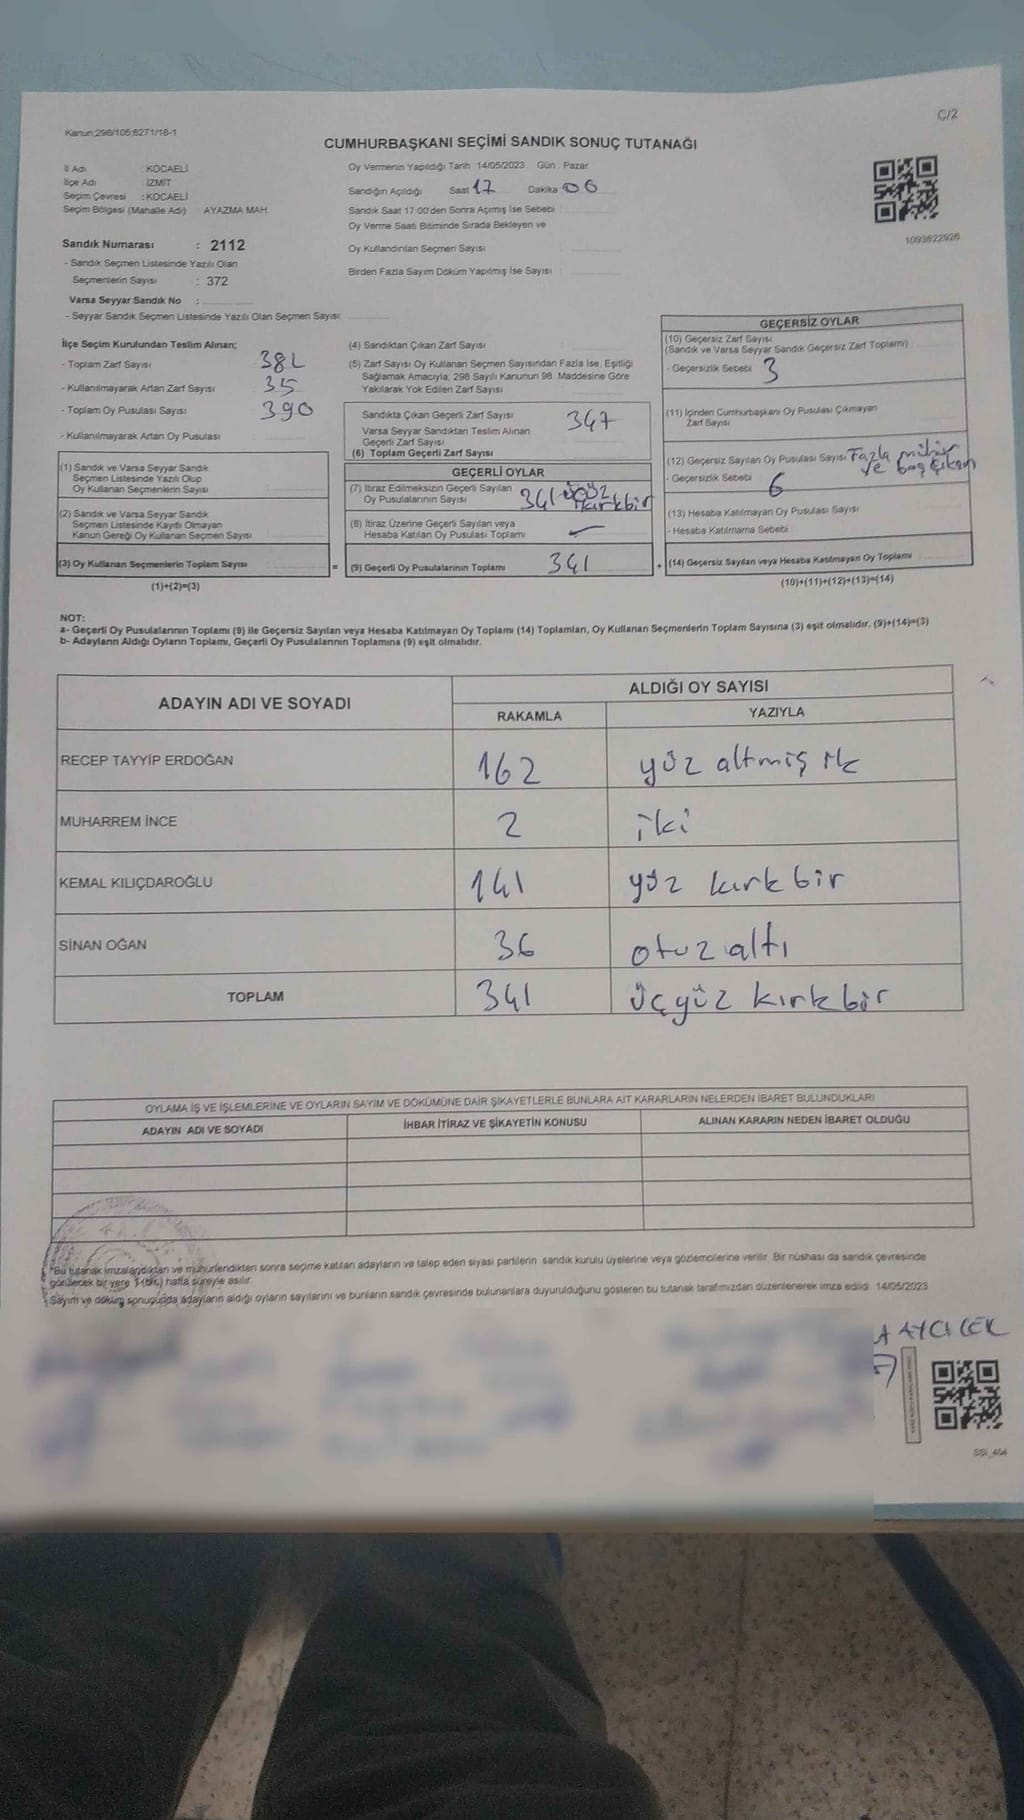 C/2
Kanun;298/105;6271/18-1
CUMHURBAŞKANI SEÇİMİ SANDIK SONUÇ TUTANAĞI
İl Adı : KOCAELİ
İlçe Adı : İZMİT
Seçim Çevresi : KOCAELİ
Seçim Bölgesi (Mahalle Adı) : AYAZMA MAH.
Oy Vermenin Yapıldığı Tarih 14/05/2023 Gün : Pazar
Sandığın Açıldığı Saat 17 Dakika 00
Sandık Saat 17:00'den Sonra Açımış İse Sebebi :
Oy Verme Saati Bitiminde Sırada Bekleyen ve
Oy Kullandırılan Seçmen Sayısı :
Birden Fazla Sayım Döküm Yapılmış İse Sayısı :
1093622926
Sandık Numarası : 2112
- Sandık Seçmen Listesinde Yazılı Olan
Seçmenlerin Sayısı : 372
Varsa Seyyar Sandık No :
- Seyyar Sandık Seçmen Listesinde Yazılı Olan Seçmen Sayısı
İlçe Seçim Kurulundan Teslim Alınan;
- Toplam Zarf Sayısı : 382
- Kullanılmayarak Artan Zarf Sayısı : 35
- Toplam Oy Pusulası Sayısı : 390
- Kullanılmayarak Artan Oy Pusulası :
(1) Sandık ve Varsa Seyyar Sandık
Seçmen Listesinde Yazılı Olup
Oy Kullanan Seçmenlerin Sayısı
(2) Sandık ve Varsa Seyyar Sandık
Seçmen Listesinde Kayıtlı Olmayan
Kanun Gereği Oy Kullanan Seçmen Sayısı
(3) Oy Kullanan Seçmenlerin Toplam Sayısı
(1)+(2)=(3)
=
(4) Sandıktan Çıkan Zarf Sayısı :
(5) Zarf Sayısı Oy Kullanan Seçmen Sayısından Fazla İse, Eşitliği
Sağlamak Amacıyla; 298 Sayılı Kanunun 98. Maddesine Göre
Yakılarak Yok Edilen Zarf Sayısı :
Sandıkta Çıkan Geçerli Zarf Sayısı 347
Varsa Seyyar Sandıktan Teslim Alınan
Geçerli Zarf Sayısı
(6) Toplam Geçerli Zarf Sayısı
GEÇERLİ OYLAR
(7) İtiraz Edilmeksizin Geçerli Sayılan
Oy Pusulalarının Sayısı 341 üçyüz kırkbir
(8) İtiraz Üzerine Geçerli Sayılan veya
Hesaba Katılan Oy Pusulası Toplamı -
(9) Geçerli Oy Pusulalarının Toplamı 341
+
GEÇERSİZ OYLAR
(10) Geçersiz Zarf Sayısı
(Sandık ve Varsa Seyyar Sandık Geçersiz Zarf Toplamı)
- Geçersizlik Sebebi 3
(11) İçinden Cumhurbaşkanı Oy Pusulası Çıkmayan
Zarf Sayısı
(12) Geçersiz Sayılan Oy Pusulası Sayısı Fazla mühür
ve boş çıkan
- Geçersizlik Sebebi 6
(13) Hesaba Katılmayan Oy Pusulası Sayısı
- Hesaba Katılmama Sebebi
(14) Geçersiz Sayılan veya Hesaba Katılmayan Oy Toplamı
(10)+(11)+(12)+(13)=(14)
NOT:
a- Geçerli Oy Pusulalarının Toplamı (9) ile Geçersiz Sayılan veya Hesaba Katılmayan Oy Toplamı (14) Toplamları, Oy Kullanan Seçmenlerin Toplam Sayısına (3) eşit olmalıdır. (9)+(14)=(3)
b- Adayların Aldığı Oyların Toplamı, Geçerli Oy Pusulalarının Toplamına (9) eşit olmalıdır.
ADAYIN ADI VE SOYADI
ALDIĞI OY SAYISI
RAKAMLA YAZIYLA
RECEP TAYYİP ERDOĞAN 162 yüz altmış ik
MUHARREM İNCE 2 iki
KEMAL KILIÇDAROĞLU 141 yüz kırk bir
SİNAN OĞAN 36 otuz altı
TOPLAM 341 üçyüz kırk bir
OYLAMA İŞ VE İŞLEMLERİNE VE OYLARIN SAYIM VE DÖKÜMÜNE DAİR ŞİKAYETLERLE BUNLARA AİT KARARLARIN NELERDEN İBARET BULUNDUKLARI
ADAYIN ADI VE SOYADI İHBAR İTİRAZ VE ŞİKAYETİN KONUSU ALINAN KARARIN NEDEN İBARET OLDUĞU
*Bu tutanak imzalandıktan ve mühürlendikten sonra seçime katılan adayların ve talep eden siyasi partilerin sandık kurulu üyelerine veya gözlemcilerine verilir. Bir nüshası da sandık çevresinde
görülecek bir yere 1 (bir) hafta süreyle asılır.
Sayım ve döküm sonucunda adayların aldığı oyların sayılarını ve bunların sandık çevresinde bulunanlara duyurulduğunu gösteren bu tutanak tarafımızdan düzenlenerek imza edildi. 14/05/2023
A AYCICEK
SSI_404